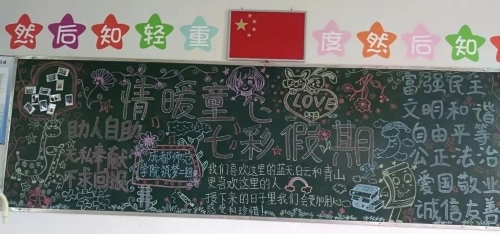 然后知轻重
度然后知
情暖童心
七彩假期
LOVE
助人自助
无私奉献
不求回报
成都师范
学院筑梦一组
我们喜欢这里的蓝天白云和青山
更喜欢这里的人
接下来的日子里我们会更加用心
富强民主
文明和谐
自由平等
公正法治
爱国敬业
诚信友善